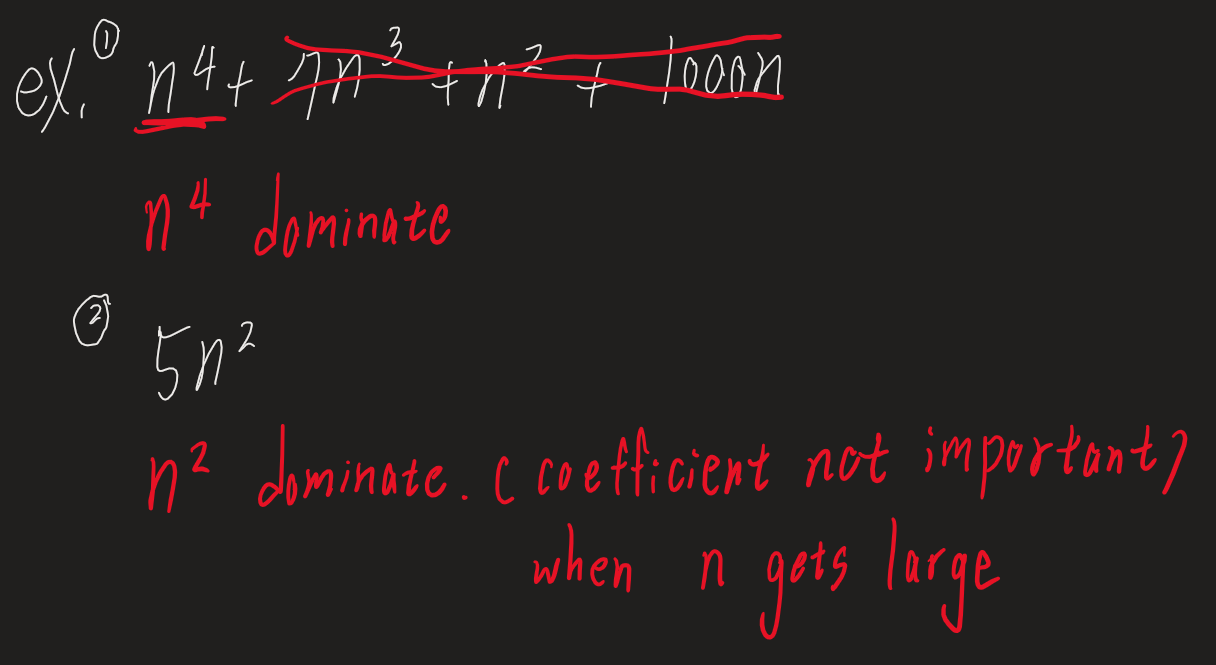 ex. ① n⁴ + 7n³ + n² + 1000n
n⁴ dominate
② 5n²
n² dominate. (coefficient not important)
when n gets large